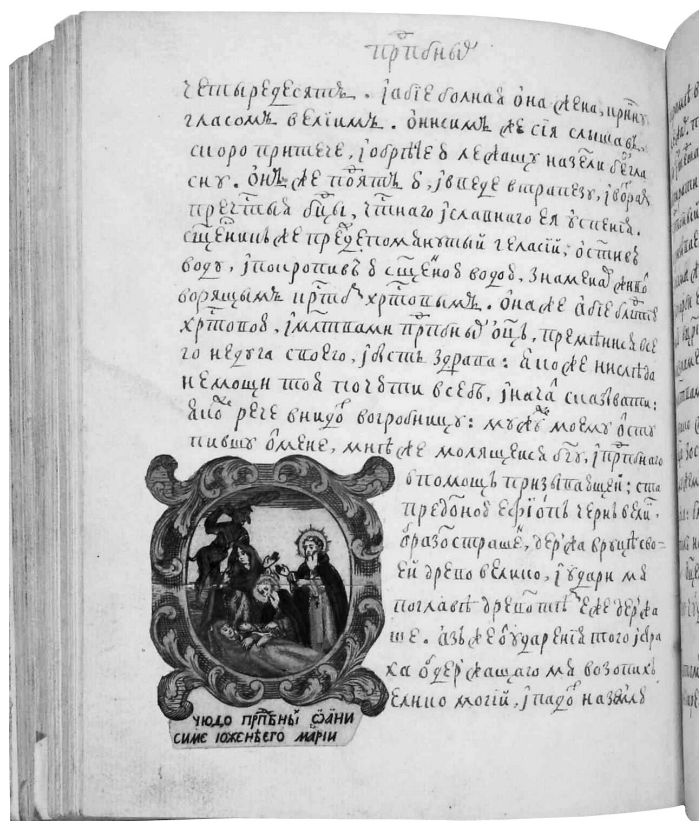 прⷣпбныⷯ
четыредесѧтъ . и҆абїе болнаѧ ѻ҆на жена, крикну
гласомъ велїимъ . ѻ҆нисимъ же сїѧ слышавъ,
скоро притече, и҆ѡбрѣте ю лежащу на земли безгла
сну . ѻ҆нъ же поѧтъ ю, и҆введе втрапезу, и҆вохрамъ
пречⷭ҇тыѧ бцы, чⷭ҇тнаго и҆славнаго еѧ ᲂу҆спенїѧ .
сщ҃енникъ же предепомѧнутый геласїй, ѡ҆ст҃ивъ
воду, и҆покропивъ ю сщ҃енною водою, знаменаⷡ ю животво
ворѧщымъ крⷭ҇томъ хрⷭ҇товымъ . ѻ҆на же абїе блг҃тїю
хрⷭ҇товою, и҆млт҃вами прпбныⷯ ѻ҆ц҃ъ, премѣнисѧ все
го недуга своего, и҆бысть здрава : ꙗкоже нислѣда
немощи тоѧ почюти всебѣ, и҆нача сказывати :
ꙗкоⷤ рече внидоⷯ вогробницу : мужꙋ моему ѿсту
пившу ѿмене, мнѣ же молѧщисѧ бг҃у, и҆прпбнаго
впомощь призывающей ; ста
предомною ефїопъ черн велїй .
ѡбразомстрашеⷩ, держа вруцѣ сво
ей древо велико, и҆ ᲂудари мѧ
поглавѣ древомтѣмъ еже держа
ше . азъ же ѿударенїѧ того и҆стра
ха ѡдержащаго мѧ возопихъ
елико могїй, и҆падоⷯ наземлю
чюдо прпбныⷯ ѡани
симе іоженѣего марїи